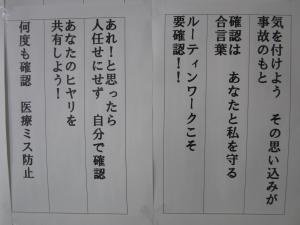 気を付けよう　その思い込みが
事故のもと
確認は　あなたと私を守る
合言葉
ルーティンワークこそ
要確認！！
あれ！と思ったら
人任せにせず　自分で確認
あなたのヒヤリを
共有しよう！
何度も確認　医療ミス防止